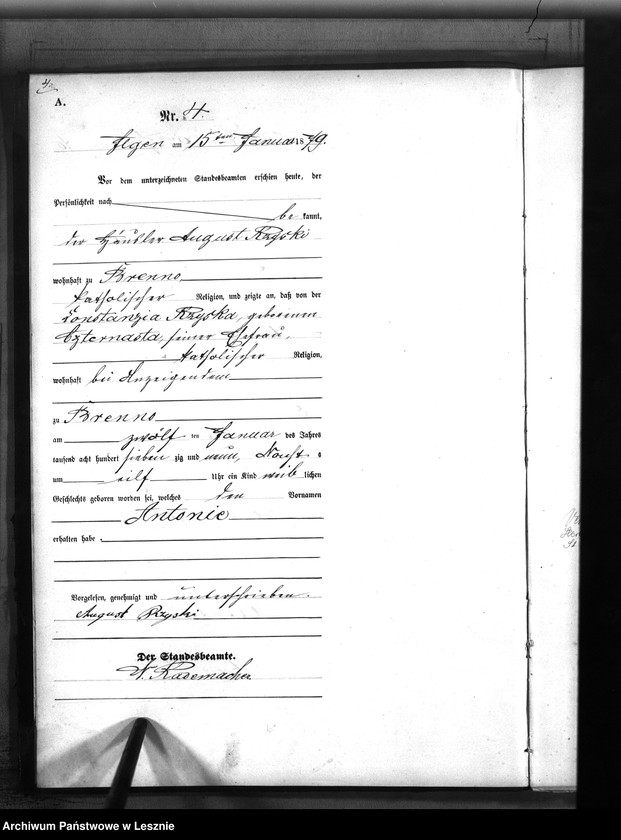 4.
A.
Nr. 4.
Ilgen am 15ten Januar 1879.
Vor dem unterzeichneten Standesbeamten erschien heute, der
Persönlichkeit nach
be kannt,
der Häusler August Rzyski
wohnhaft zu Brenno,
katholischer Religion, und zeigte an, daß von der
Constanzia Rzyska, geborenen
Czternasta, seiner Ehefrau,
katholischer Religion,
wohnhaft bei Anzeigendem
zu Brenno
am zwölf ten Januar des Jahres
tausend acht hundert sieben zig und neun, Nachts
um eilf Uhr ein Kind weib lichen
Geschlechts geboren worden sei, welches den Vornamen
Antonie
erhalten habe.
Vorgelesen, genehmigt und unterschrieben.
August Rzyski
Der Standesbeamte.
Rademacher
Archiwum Państwowe w Lesznie